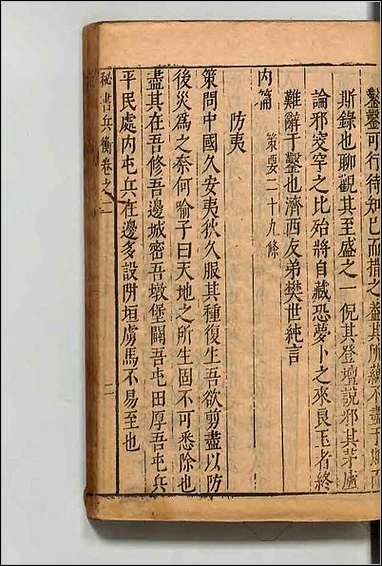 鑿鑿可行待知已而措之蓋其所蘊不盡于
斯錄也聊觀其至盛之一倪其登壇說邪其茅廬
論邪穾穸之比殆將自藏恐夢卜之來良玉者終
難辭于鑿也濟西友弟樊世純言
內篇 策要二十九條
防夷
策問中國久安夷狄久服其種復生吾欲剪盡以防
後災為之奈何喻子曰天地之所生固不可悉除也
盡其在吾修吾邊城密吾墩堡闢吾屯田厚吾屯兵
平民處內屯兵在邊多設阱垣虜馬不易至也
秘書兵衡卷之二 二